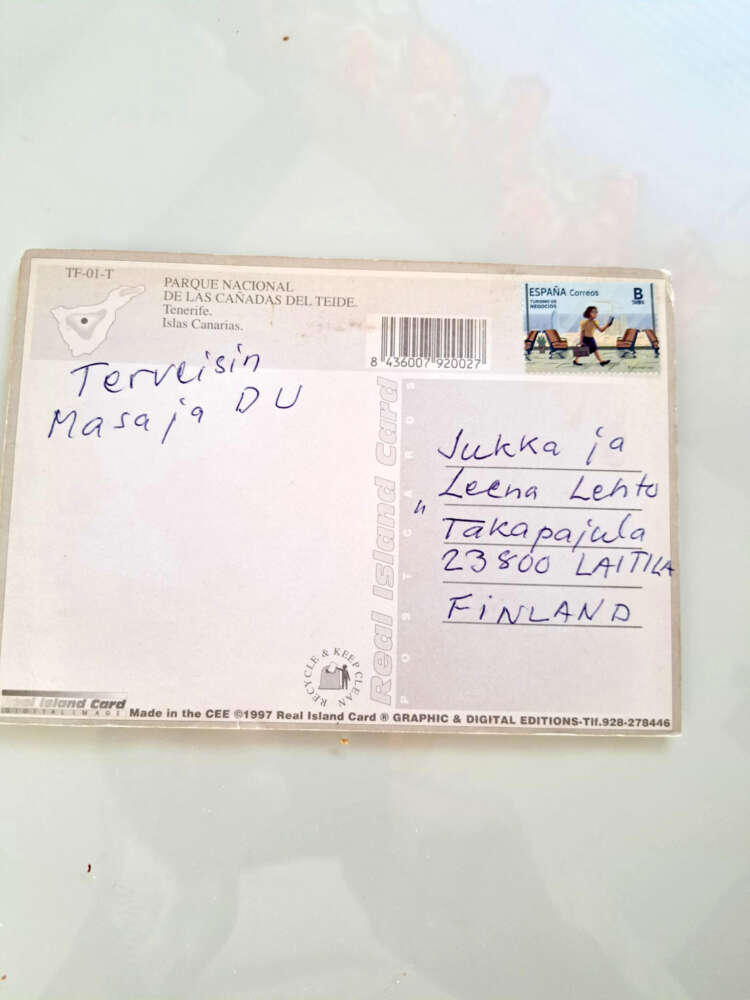 TF-01-T
PARQUE NACIONAL
DE LAS CAÑADAS DEL TEIDE.
Tenerife.
Islas Canarias.
8 436007 920027
ESPAÑA Correos
B
TURISMO DE
NEGOCIOS
Terveisin
Masa ja DU
Jukka ja
Leena Lehto
"
Takapajula
23800 LAITILA
FINLAND
Real Island Card
POSTCARDS
RECYCLE & KEEP CLEAN
Real Island Card
DIGITAL IMAGE
Made in the CEE ©1997 Real Island Card ® GRAPHIC & DIGITAL EDITIONS-Tlf.928-278446